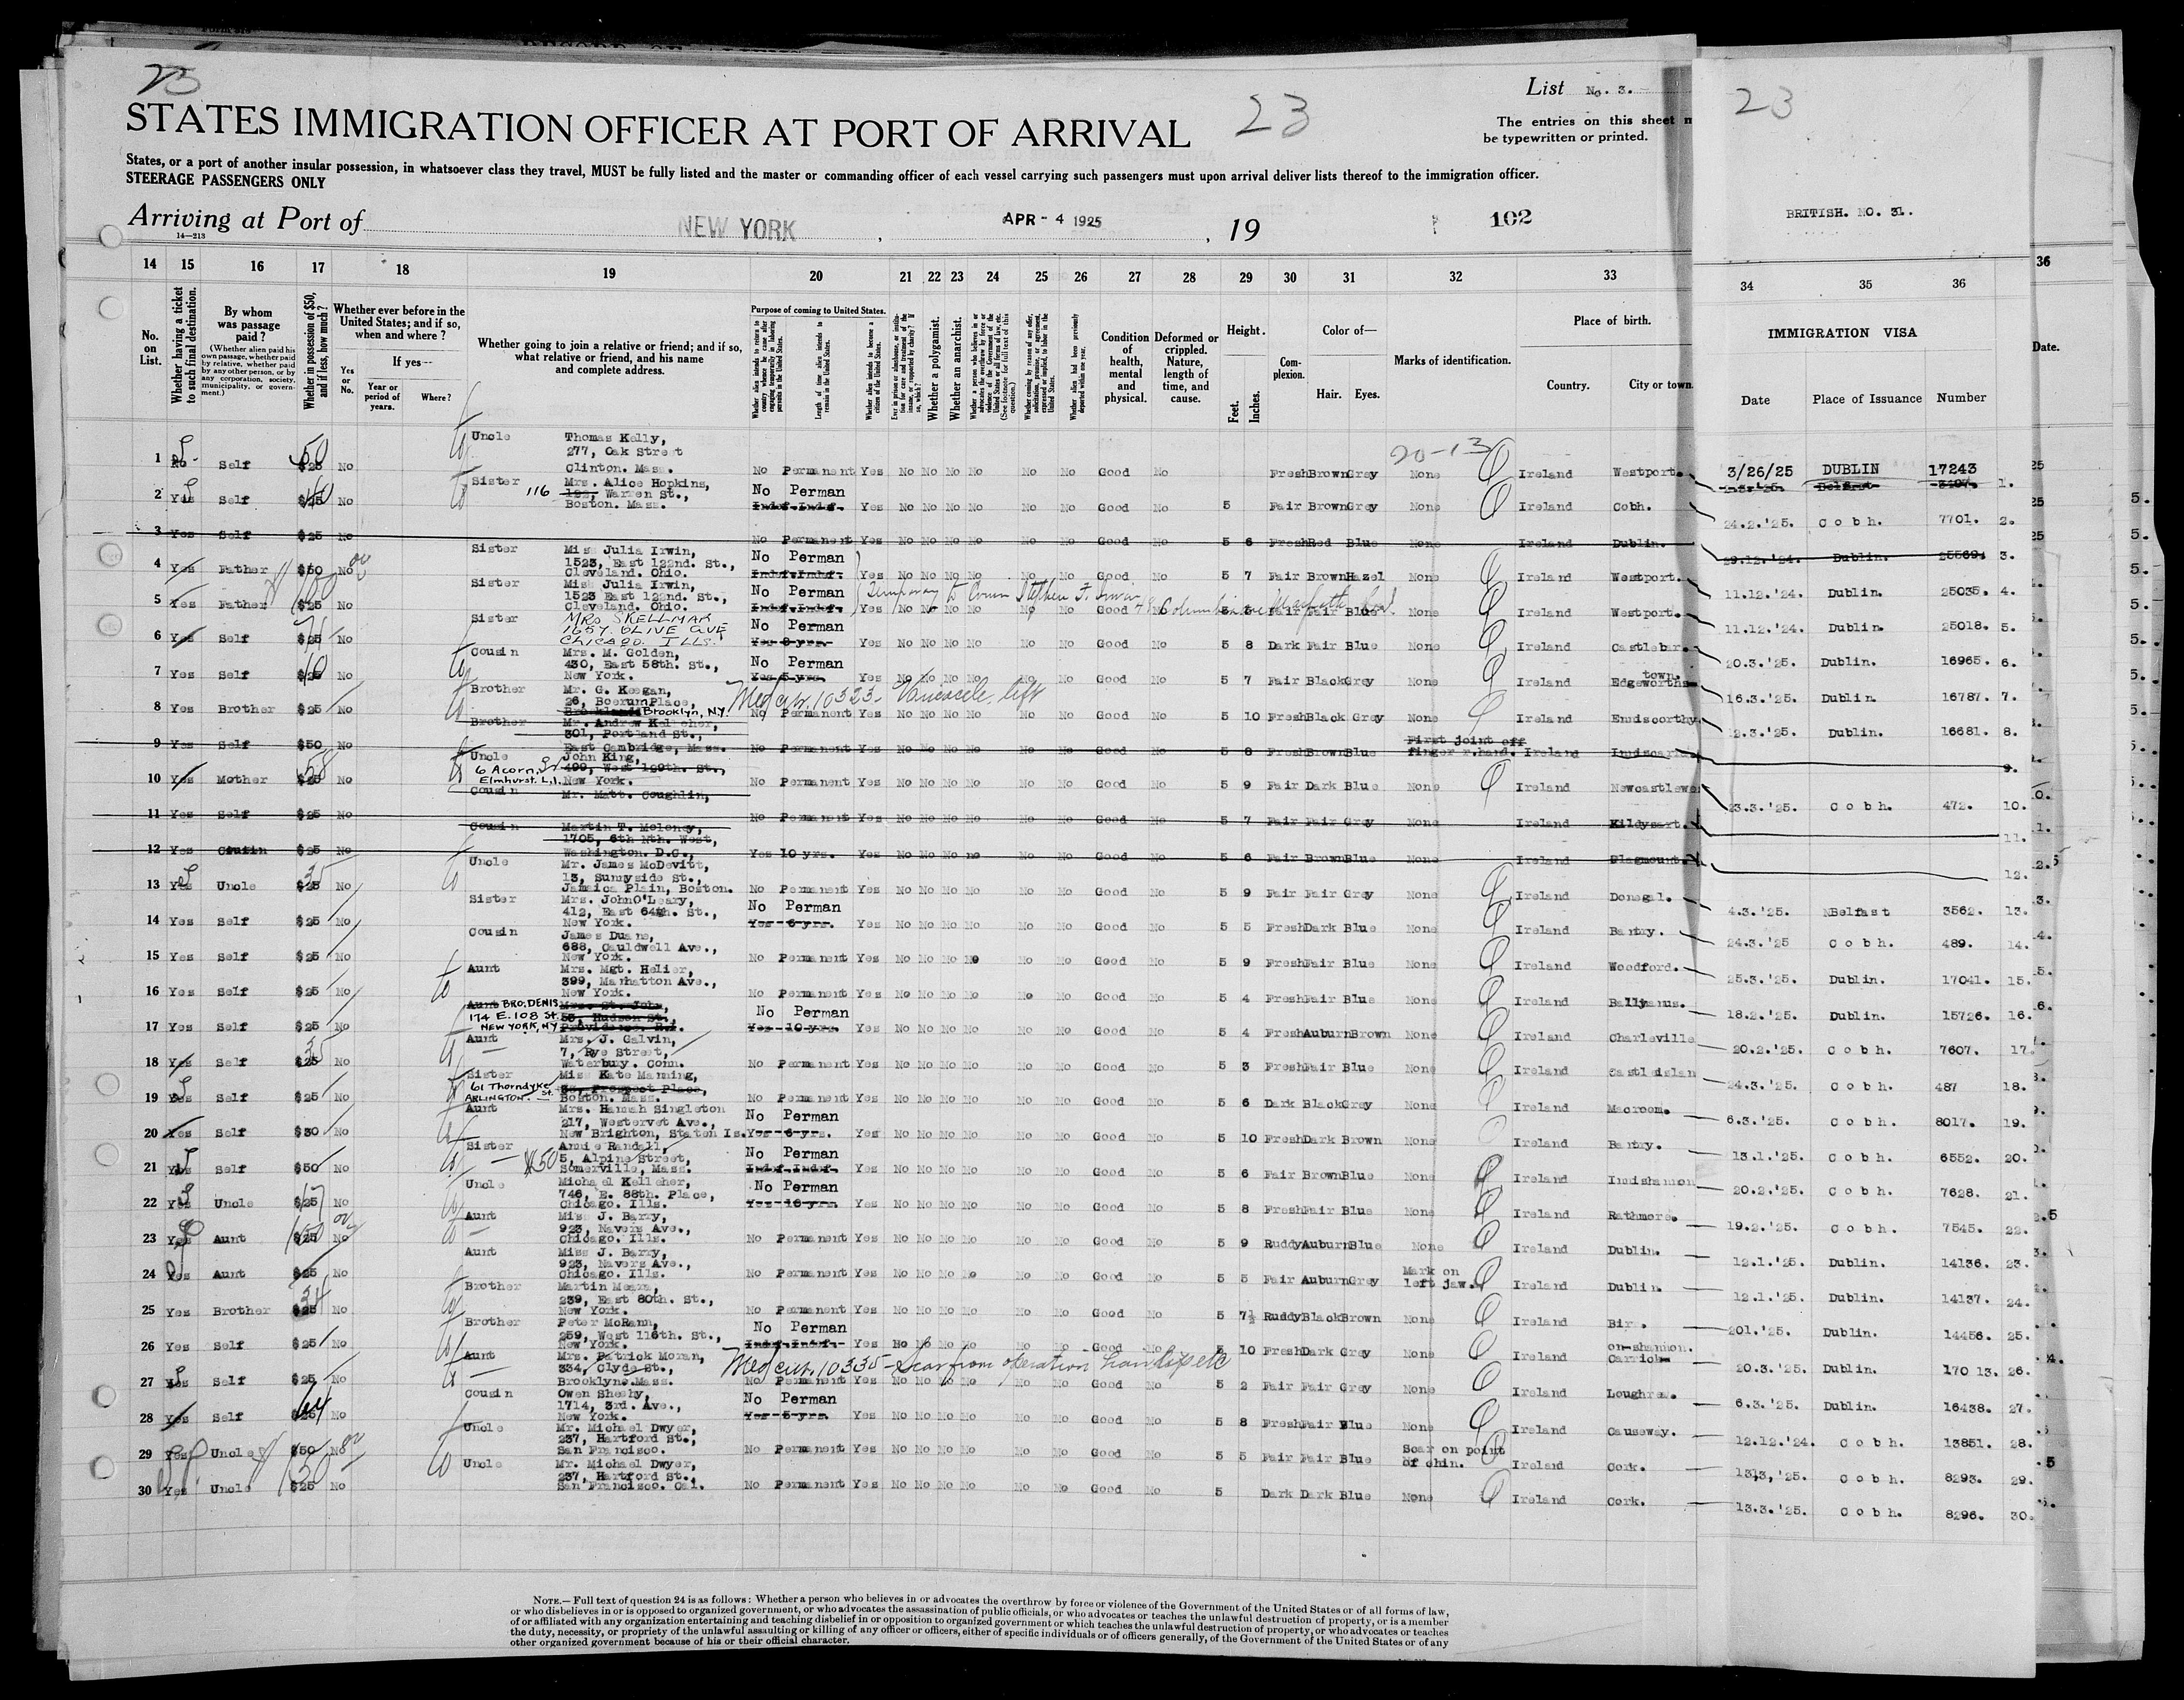 23
List No. 3.
STATES IMMIGRATION OFFICER AT PORT OF ARRIVAL
23
The entries on this sheet m
be typewritten or printed.
States, or a port of another insular possession, in whatsoever class they travel, MUST be fully listed and the master or commanding officer of each vessel carrying such passengers must upon arrival deliver lists thereof to the immigration officer.
STEERAGE PASSENGERS ONLY
Arriving at Port of NEW YORK, APR - 4 1925, 19
102
14—213
23
BRITISH. NO. 31.
14 15 16 17 18 19 20 21 22 23 24 25 26 27 28 29 30 31 32 33 34 35 36
36
No. on List.
Whether having a ticket to such final destination.
By whom was passage paid?
(Whether alien paid his own passage, whether paid by relative, whether paid by any other person, or by any corporation, society, municipality, or government.)
Whether in possession of $50, and if less, how much?
Whether ever before in the United States; and if so, when and where?
Yes or No.
If yes—
Year or period of years.
Where?
Whether going to join a relative or friend; and if so, what relative or friend, and his name and complete address.
Purpose of coming to United States.
Whether alien intends to return to country whence he came after engaging temporarily in laboring pursuits in the United States.
Length of time alien intends to remain in the United States.
Whether alien intends to become a citizen of the United States.
Whether a polygamist.
Whether an anarchist.
Condition of health, mental and physical.
Deformed or crippled. Nature, length of time, and cause.
Height.
Feet.
Inches.
Complexion.
Color of—
Hair.
Eyes.
Marks of identification.
Place of birth.
Country.
City or town
IMMIGRATION VISA
Date
Place of Issuance
Number
Date.
20-13
1 No Self $25 50 No Uncle Thomas Kelly, 277, Oak Street Clinton. Mass. No Permanent Yes No No No No No No Good No Fresh Brown Grey None Ireland Westport. 3/26/25 DUBLIN 17243 Belfast 1.
2 Yes Self $25 No Sister Mrs. Alice Hopkins, 116 Warren St., Boston. Mass. No Perman Indef. Indef. Yes No No No No No No Good No 5 Fair Brown Grey None Ireland Cobh. 24.2.'25. Cobh. 7701. 2.
3 Yes Self $25 No No Permanent Yes No No No No No No Good No 5 6 Fresh Red Blue None Ireland Dublin. 29.12.'24. Dublin. 25569. 3.
4 Yes Father $50 No Sister Miss Julia Irwin, 1523, East 122nd. St., Cleveland. Ohio. No Perman Indef. Indef. Yes No No No No No No Good No 5 7 Fair Brown Hazel None Ireland Westport. 11.12.'24. Dublin. 25035. 4.
Temporary to Cousin Stephen F. Irwin
5 Yes Father $25 No Sister Miss Julia Irwin, 1523 East 122nd. St., Cleveland. Ohio. No Perman Indef. Indef. Yes No No No No No No Good No 5 5 Fair Fair Blue Ireland Westport. 11.12.'24. Dublin. 25018. 5.
6 Yes Self $25 No Sister MRS SKELLMAR 1657 OLIVE AVE CHICAGO. ILLS. No Perman Yes Yes No No No No No No Good No 5 8 Dark Fair Blue None Ireland Castlebar. 20.3.'25. Dublin. 16965. 6.
7 Yes Self $25 No Cousin Mrs. M. Golden, 430, East 58th. St., New York. No Perman Yes 5 yrs. Yes No No No No No No Good No 5 7 Fair Black Grey None Ireland Edgeworths town. 16.3.'25. Dublin. 16787. 7.
Med cert. 10323- Varicocele left
8 Yes Brother $25 No Brother Mr. G. Keegan, 26, Boerum Place, Brooklyn, NY. No Permanent Yes No No No No No No Good No 5 10 Fresh Black Grey None Ireland Enniscorthy 12.3.'25. Dublin. 16681. 8.
9 Yes Self $50 No Brother Mr. Andrew Kelleher, 301, Portland St., East Cambridge, Mass. No Permanent Yes No No No No No No Good No 5 8 Fresh Brown Blue First joint off finger r.hand. Ireland 9.
10 Yes Mother $25 58 No Uncle John King, 409, West 129th. St., New York. 6 Acorn St Elmhurst. L.I. No Permanent Yes No No No No No No Good No 5 9 Fair Dark Blue None Ireland Newcastlewe 23.3.'25. Cobh. 472. 10.
11 Yes Self $25 No Cousin Mr. Matt. Coughlin, No Permanent Yes No No No No No No Good No 5 7 Fair Fair Grey None Ireland Kildysart. 11.
12 Yes Cousin $25 No Cousin Martin T. Moloney, 1705, 6th Nth. West, Washington. D.C., Yes 10 yrs. Yes No No No no No No Good No 5 6 Fair Brown Blue None Ireland 12.
13 Yes Uncle $25 35 No Uncle Mr. James McDevitt, 13, Sunnyside St., Jamaica Plain, Boston. No Permanent Yes No No No No No No Good No 5 9 Fair Fair Grey None Ireland Donegal. 4.3.'25. Belfast 3562. 13.
14 Yes Self $25 No Sister Mrs. John O'Leary, 412, East 64th. St., New York. No Perman Yes 6 yrs. Yes No No No No No No Good No 5 5 Fresh Dark Blue None Ireland Bantry. 24.3.'25 Cobh. 489. 14.
15 Yes Self $25 No Cousin James Duane, 688, Cauldwell Ave., New York. No Permanent Yes No No No No No No Good No 5 9 Fresh Fair Blue None Ireland Woodford. 25.3.'25. Dublin. 17041. 15.
16 Yes Self $25 No Aunt Mrs. Mgt. Helier, 399, Manhatton Ave., New York. No Permanent Yes No No No No No No Good No 5 4 Fresh Fair Blue None Ireland 18.2.'25. Dublin. 15726. 16.
17 Yes Self $25 No Aunt Mrs. St. John, 55, Hudson St., Providence. R.I. BRO. DENIS 174 E. 108 St. NEW YORK, NY No Perman Yes 10 yrs. Yes No No No No No No Good No 5 4 Fresh Auburn Brown None Ireland Charleville 20.2.'25. Cobh. 7607. 17.
18 Yes Self $25 35 No Aunt Mrs. J. Galvin, 7, Rye Street, Waterbury. Conn. No Permanent Yes No No No No No No Good No 5 3 Fresh Fair Blue None Ireland Castleislan 24.3.'25. Cobh. 487 18.
19 Yes Self $25 No Sister Miss Kate Manning, Prospect Place, Boston. Mass. 61 Thorndyke St. ARLINGTON. No Permanent Yes No No No No No No Good No 5 6 Dark Black Grey None Ireland Macroom. 6.3.'25. Cobh. 8017. 19.
20 Yes Self $30 No Aunt Mrs. Hannah Singleton 217, Westervet Ave., New Brighton, Staten Is. No Perman Yes 6 yrs. Yes No No No No No No Good No 5 10 Fresh Dark Brown None Ireland Bantry. 13.1.'25. Cobh. 6552. 20.
21 Yes Self $50 No Sister Annie Randall, 5, Alpine Street, Somerville, Mass. $50 No Perman Indef. Indef. Yes No No No No No No Good No 5 6 Fair Brown Blue None Ireland Innishannon 20.2.'25. Cobh. 7628. 21.
22 Yes Uncle $25 No Uncle Michael Kelleher, 746, E. 88th. Place, Chicago. Ills. No Perman Yes Yes No No No No No No Good No 5 8 Fresh Fair Blue None Ireland Rathmore. 19.2.'25. Cobh. 7545. 22.
23 Yes Aunt $25 No Aunt Miss J. Barry, 923, Navers Ave., Chicago. Ills. No Permanent Yes No No No No No No Good No 5 9 Ruddy Auburn Blue None Ireland Dublin. 12.1.'25. Dublin. 14136. 23.
24 Yes Aunt $25 No Aunt Miss J. Barry, 923, Navers Ave., Chicago. Ills. No Permanent Yes No No No No No No Good No 5 5 Fair Auburn Grey Mark on left jaw. Ireland Dublin. 12.1.'25. Dublin. 14137. 24.
25 Yes Brother $25 34 No Brother Martin Meara, 239, East 80th. St., New York. No Permanent Yes No No No No No No Good No 5 7½ Ruddy Black Brown None Ireland Birr. 201.'25. Dublin. 14456. 25.
26 Yes Self $25 No Brother Peter McRann, 259, West 116th. St., New York. No Perman Indef. Indef. Yes No No No No No No Good No 5 10 Fresh Dark Grey None Ireland Carrick- on-shannon. 20.3.'25. Dublin. 170 13. 26.
Med cert. 10335- Scar from operation
27 Yes Self $25 No Aunt Mrs. Patrick Moran, 334, Clyde St., Brooklyne. Mass. No Permanent Yes No No No No No No Good No 5 2 Fair Fair Grey None Ireland Loughrea. 6.3.'25. Dublin. 16438. 27.
28 Yes Self $25 64 No Cousin Owen Sheehy, 1714, 3rd. Ave., New York. No Perman Yes 5 yrs. Yes No No No No No No Good No 5 8 Fresh Fair Blue None Ireland Causeway. 12.12.'24. Cobh. 13851. 28.
29 Yes Uncle $50 No Uncle Mr. Michael Dwyer, 237, Hartford St., San Francisco. No Permanent Yes No No No No No No Good No 5 5 Fair Fair Blue Scar on point of chin. Ireland Cork. 13.3.'25. Cobh. 8293. 29.
30 Yes Uncle $25 50 No Uncle Mr. Michael Dwyer, 237, Hartford St., San Francisco. Cal. No Permanent Yes No No No No No No Good No 5 Dark Dark Blue None Ireland Cork. 13.3.'25. Cobh. 8296. 30.
NOTE.—Full text of question 24 is as follows: Whether a person who believes in or advocates the overthrow by force or violence of the Government of the United States or of all forms of law,
or who disbelieves in or is opposed to organized government, or who advocates the assassination of public officials, or who advocates or teaches the unlawful destruction of property, or is a member
of or affiliated with any organization entertaining and teaching disbelief in or opposition to organized government or which teaches the unlawful destruction of property, or who advocates or teaches
the duty, necessity, or propriety of the unlawful assaulting or killing of any officer or officers, either of specific individuals or of officers generally, of the Government of the United States or of any
other organized government because of his or their official character.